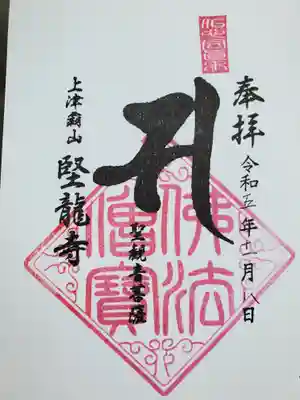 奉拝
令和五年十一月八日
聖観音菩薩
佛法
僧寶
上津嶺山
堅龍寺